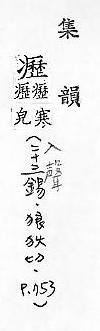 集韻
瀝
瀝寒
瀝皃
入聲
(二十三錫·狼狄切·P.753)